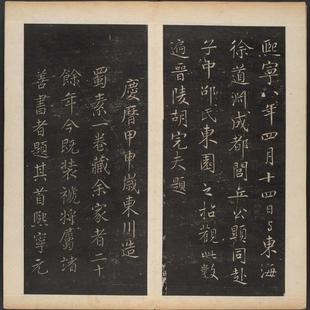 熙寧八年四月十四日與東海
徐道淵成都閭丘公顯同赴
子中邵氏東園之招觀此數
遍晉陵胡完夫題
慶曆甲申歲東川造
蜀素一卷藏余家者二十
餘年今既裝褫將屬諸
善書者題其首熙寧元